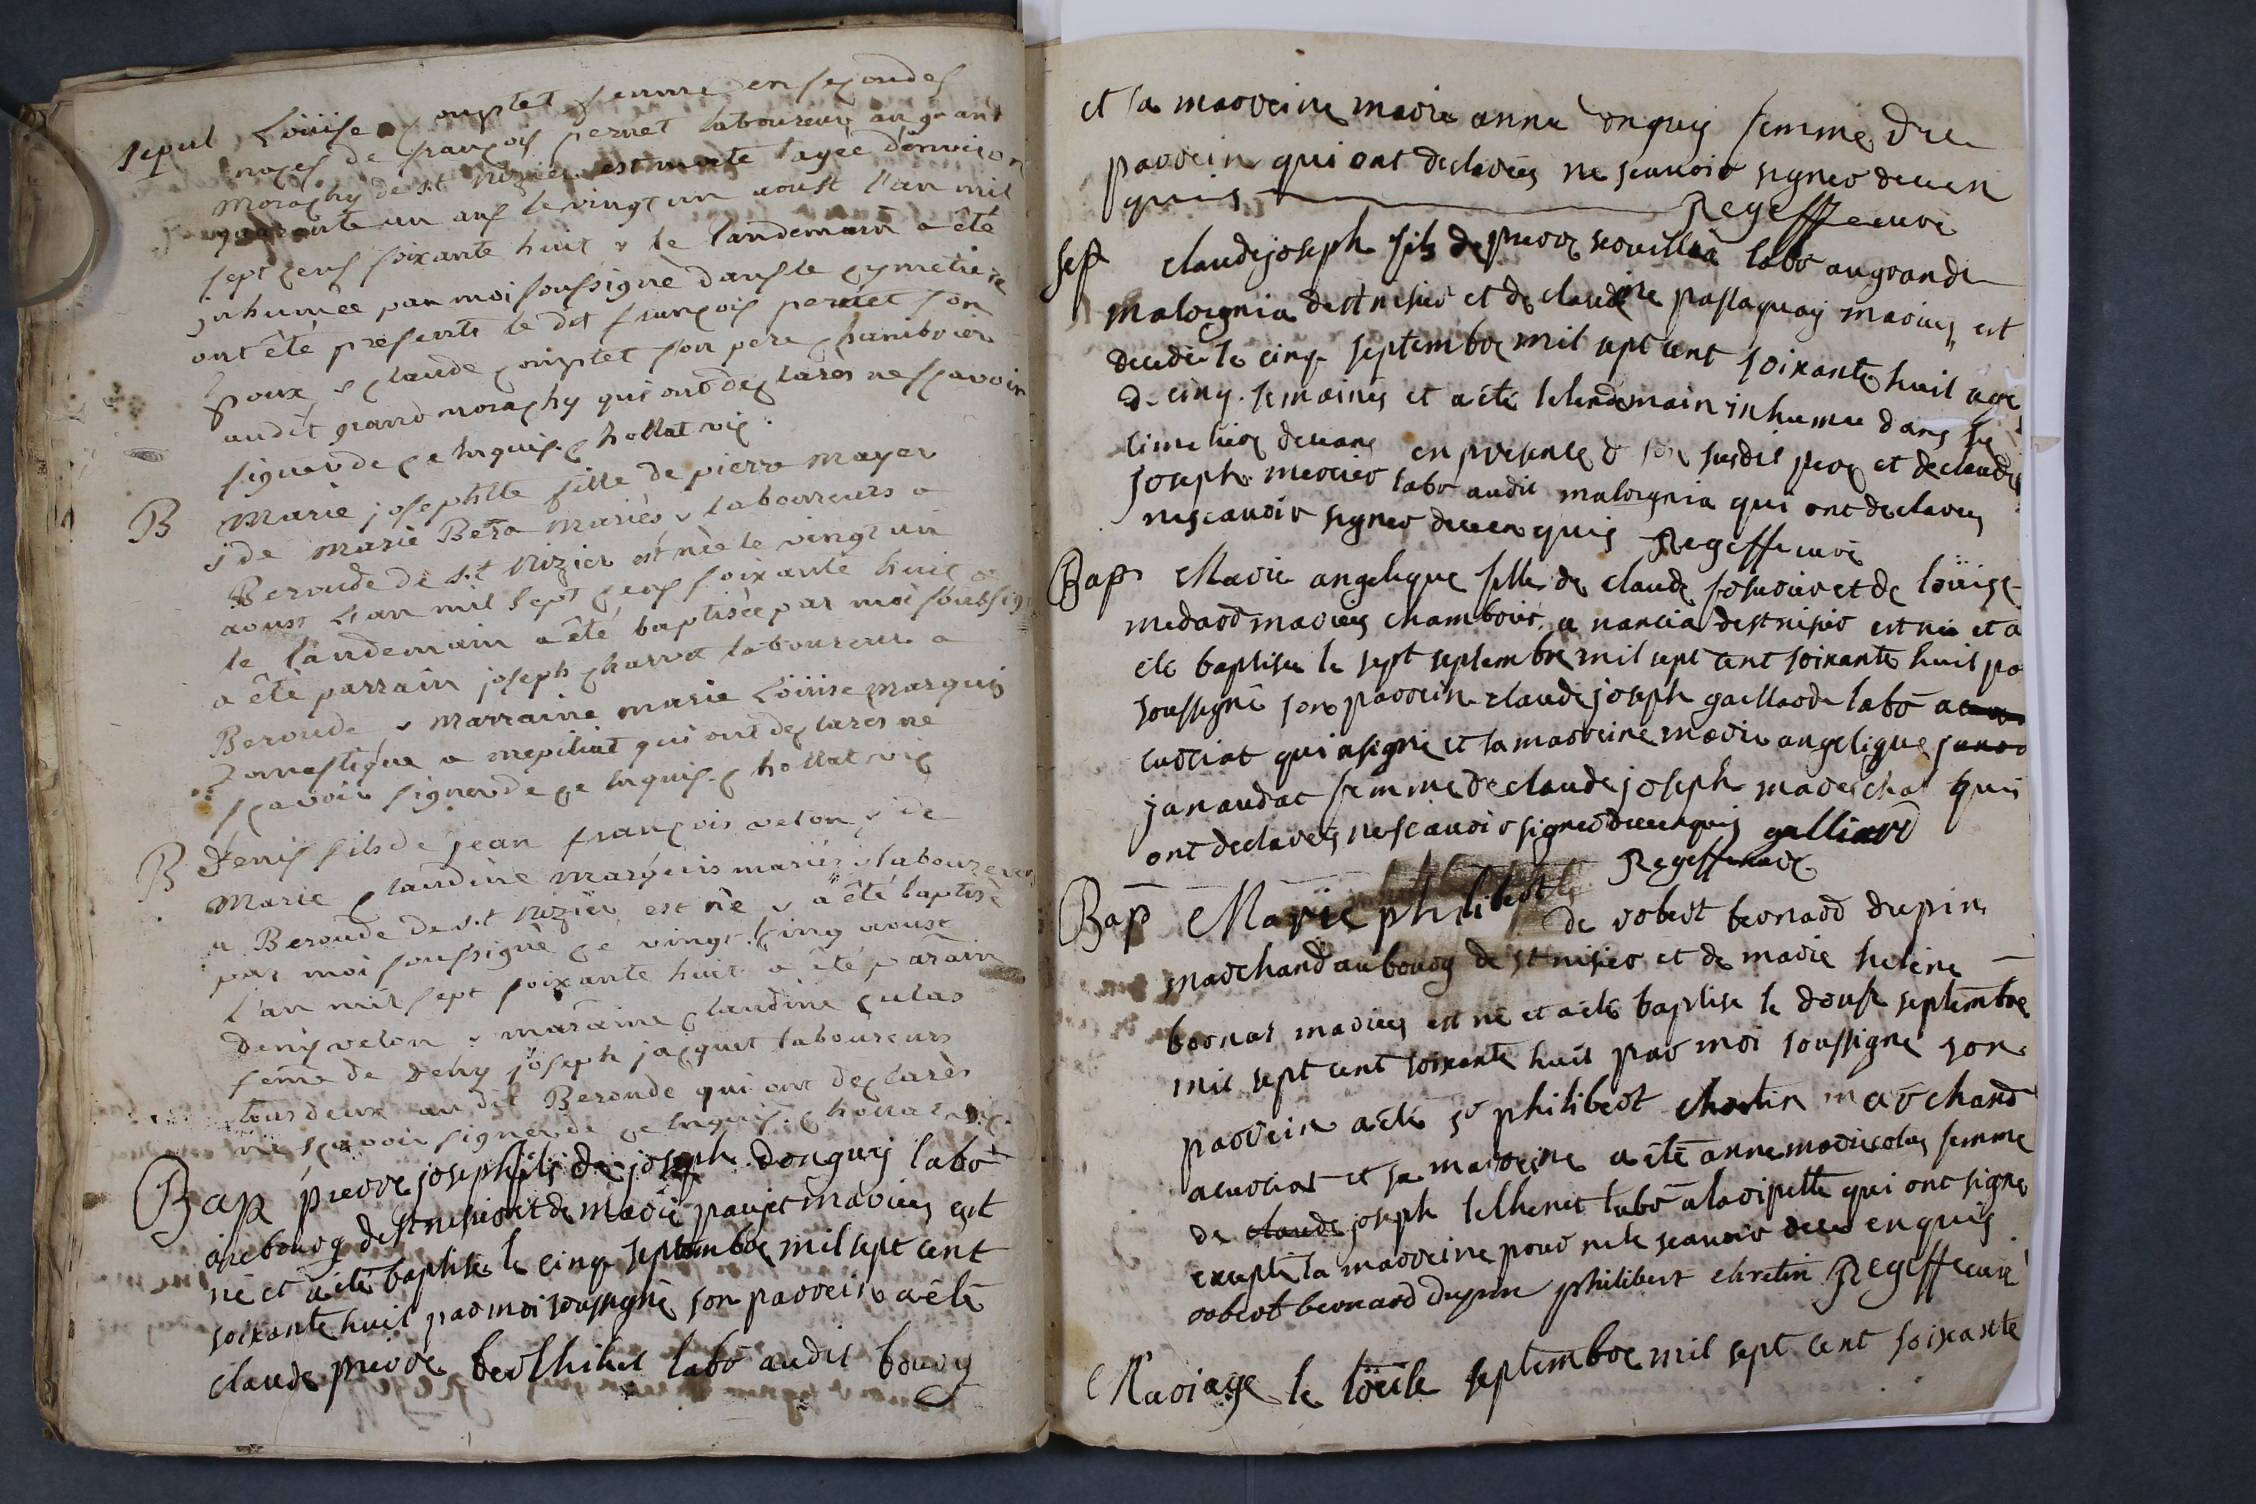 sepul Loüise Comptet femme en secondes
noces de françois pernet laboureur au grant
morachy de s.t Nizier est morte agée d'environ
quarante un ans le vingt un aoust l'an mil
sept cens soixante huit & le landemain a été
inhumée par moi soussigné dans le cymetiere
ont été presents le dit françois pernet son
Epoux, & claude comptet son pere chambrier
audit grand morachy qui ont declarés ne scavoir
signer de ce Enquis. chollat vic.
B Marie josephtte fille de pierre mayer
& de marie Bera mariés & laboureurs a
Beroude de s.t Nizier est née le vingt un
aoust l'an mil sept cens soixante huit &
le landemain a été baptisée par moi soussig
a été parrain joseph charvet laboureur a
Beroude, & marraine marie Loüise marquis
Domestique a mepiliat qui ont declarés ne
scavoir signer de ce Enquis. chollat vic
B Denis fils de jean françois velon & de
Marie claudine marquis mariés & laboureurs
a Beroude de s.t Nizier est né & a été baptisé
par moi soussigné ce vingt cinq aoust
l'an mil sept soixante huit a été parain
denis velon & maraine claudine culas
feme de deny joseph jacquet laboureurs
tous deux au dit Beroude qui ont declarés
ne scavoir signer de ce Enquis. chollat vic.
Bap pierre joseph fils de joseph donguis labo
au bourg de st nisier et de marie pauget mariés est
né et a été baptisé le cinq septembre mil sept cent
soixante huit par moi soussigné son parrein a été
claude pierre berthihet labo audit bourg
et sa marreine marie anne donguis femme du
parrein qui ont declarés ne scauoir signer de ce en
quis Regeffe curé
sep claude joseph fils de pierre labo au grand
malorgnia de st nisier et de claudine passaquay mariés est
decedé le cinq septembre mil sept cent soixante huit agé
de cinq semaines et a été le lendemain inhumé dans le
cimetiere devant en presence de son susdit pere et de claude
joseph mercier labo audit malorgnia qui ont declarés
ne scauoir signer de ce enquis Regeffe curé
Bap Marie angelique fille de claude et de loüise
medard mariés chambrier a nancia de st nisier est née et a
été baptisée le sept septembre mil sept cent soixante huit pa
soussigné son parrein claude joseph gaillard labo a
curciat qui a signé et sa marreine marie angelique
janaudac femme de claude joseph marechal qui
ont declarés ne scauoir signer de ce enquis galliard
Regeffe curé
Bap Marie philibert de robert bernard dupin
marchand au bourg de st nisier et de marie helene
bornat mariés est né et a été baptisé le douse septembre
mil sept cent soixante huit par moi soussigné son
parrein a été sr philibert chretin marchand
a curciat et sa marreine a été anne marie colas femme
de claude joseph labo a la ripette qui ont signé
excepté la marreine pour ne le scauoir de ce enquis
robert bernard dupin philibert chretin Regeffe curé
Mariage le septembre mil sept cent soixante